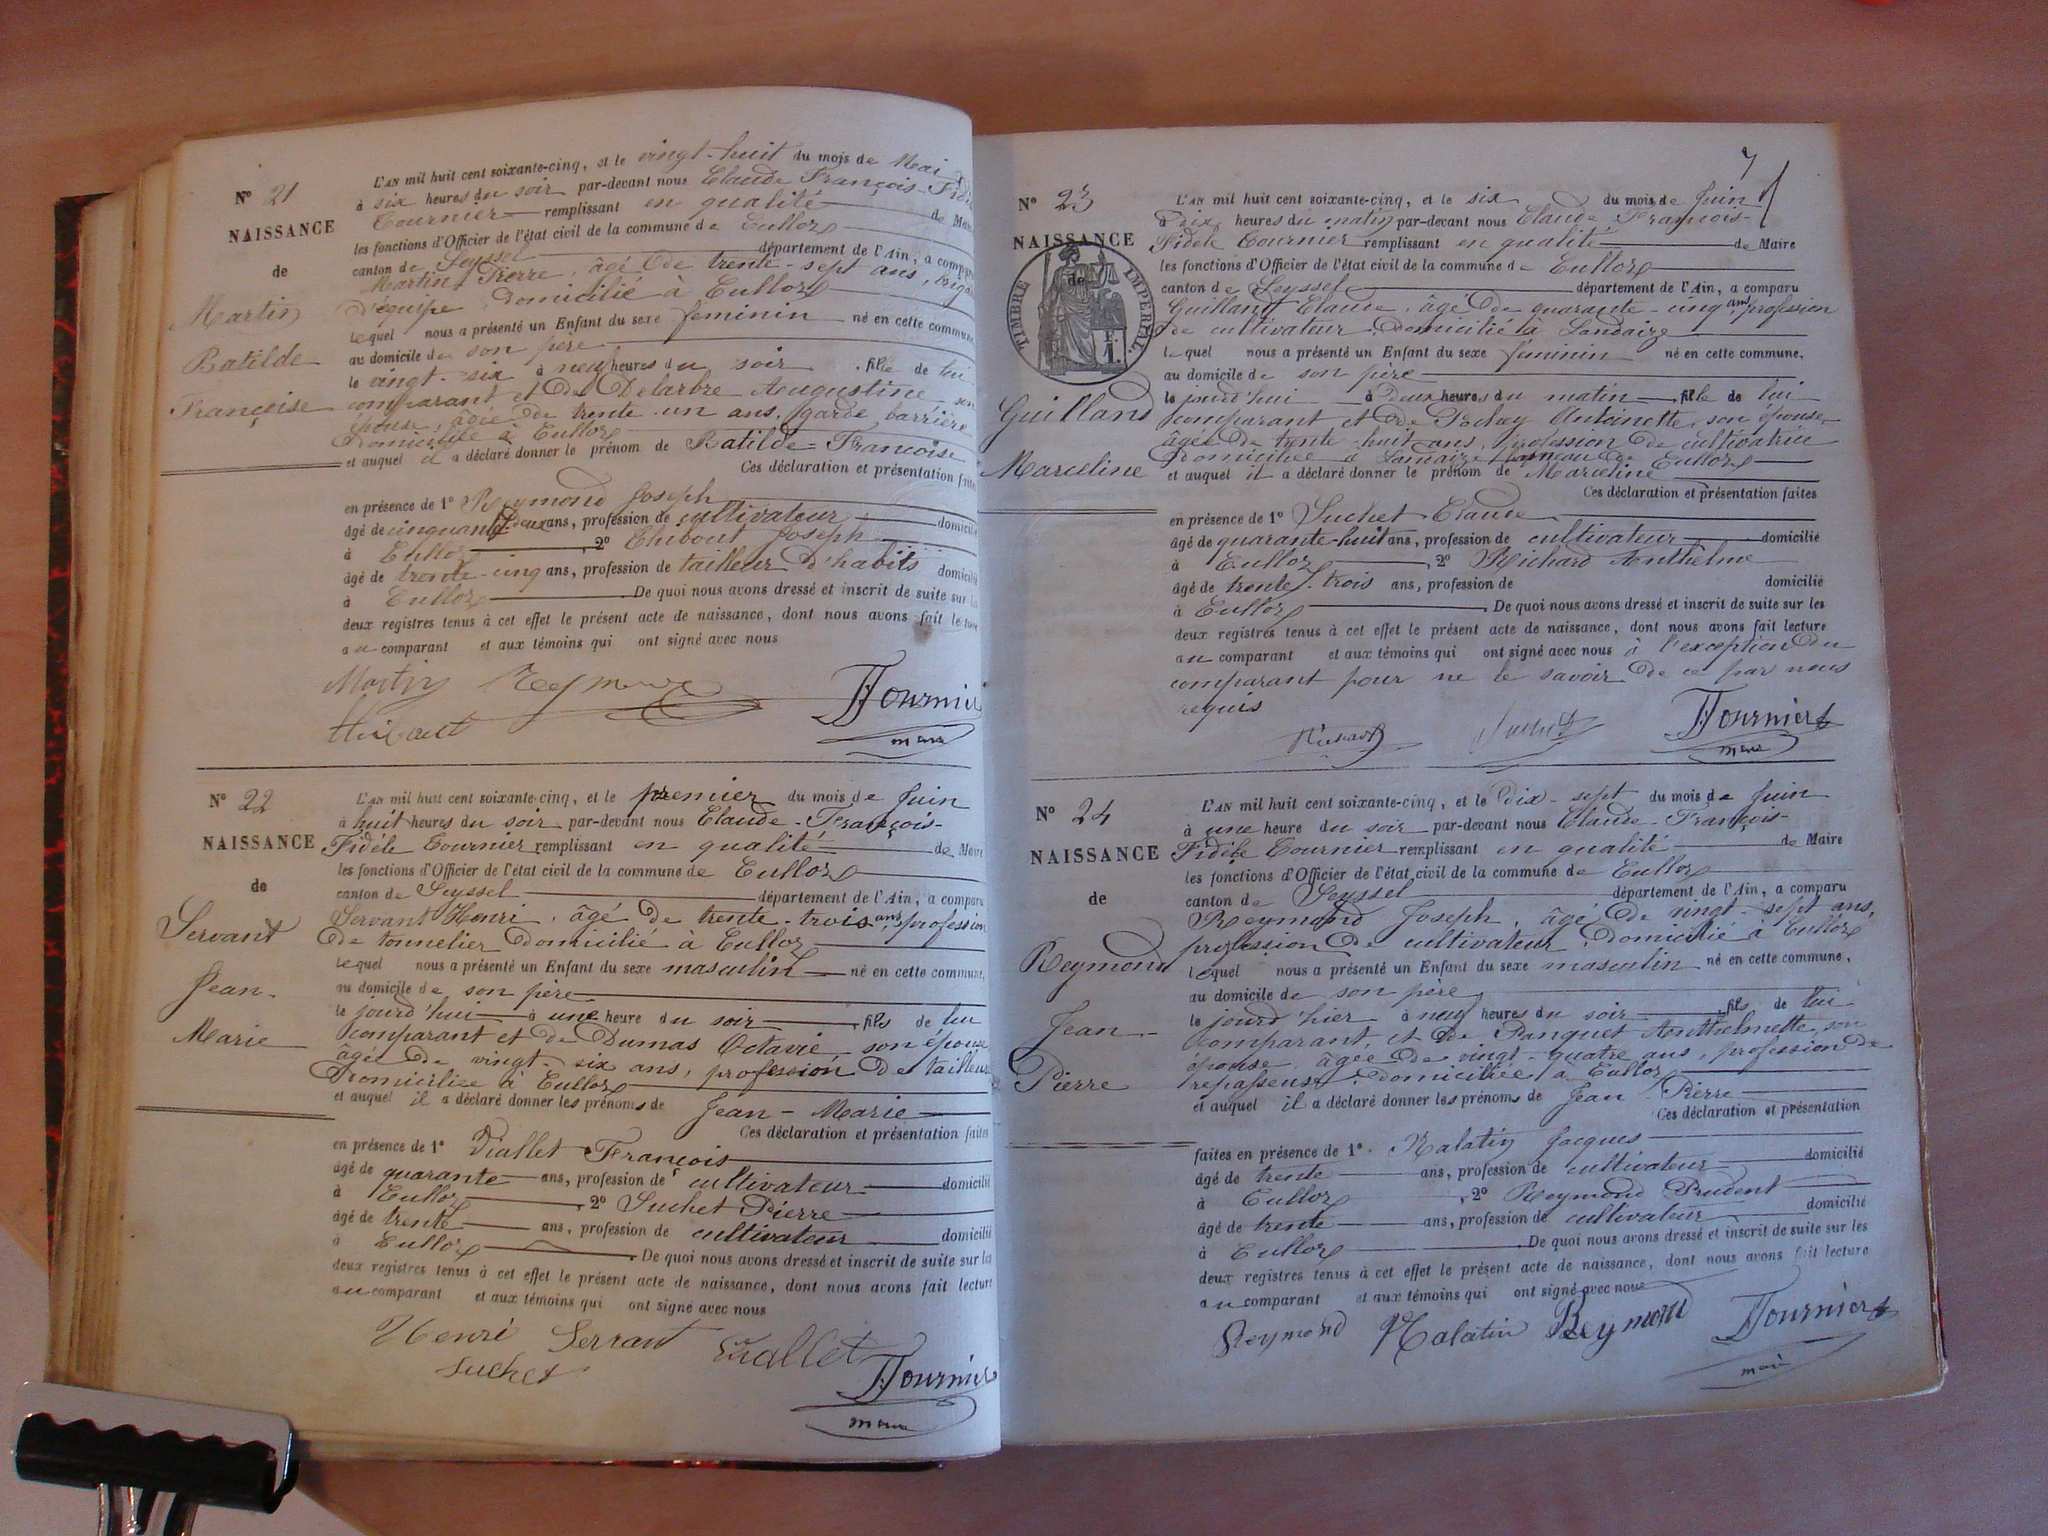 N° 21
NAISSANCE
de
Martin
Batilde
Françoise
L'AN mil huit cent soixante-cinq, et le vingt-huit du mois de Mai
à six heures du soir par-devant nous Claude François-Fidèle
Tournier remplissant en qualité de Maire
les fonctions d'Officier de l'état civil de la commune de Culloz
canton de Seyssel département de l'Ain, a comparu
Martin Pierre, âgé de trente-sept ans,
d'équipe, domicilié à Culloz
lequel nous a présenté un Enfant du sexe féminin né en cette commune
au domicile de son père
le vingt-six à neuf heures du soir fille de lui
comparant et de Delarbre Augustine son
épouse, âgée de trente-un ans, garde barrière
domiciliée à Culloz
et auquel il a déclaré donner le prénom de Batilde-Françoise
Ces déclaration et présentation faites
en présence de 1° Reymond Joseph
âgé de cinquante-deux ans, profession de cultivateur domicilié
à Culloz 2° Thibout Joseph
âgé de trente-cinq ans, profession de tailleur d'habits domicilié
à Culloz De quoi nous avons dressé et inscrit de suite sur les
deux registres tenus à cet effet le présent acte de naissance, dont nous avons fait lecture
au comparant et aux témoins qui ont signé avec nous
Martin Reymond
Tournier
maire
N° 22
NAISSANCE
de
Servant
Jean-
Marie
L'AN mil huit cent soixante-cinq, et le premier du mois de Juin
à huit heures du soir par-devant nous Claude-François-
Fidèle Tournier remplissant en qualité de Maire
les fonctions d'Officier de l'état civil de la commune de Culloz
canton de Seyssel département de l'Ain, a comparu
Servant Henri, âgé de trente-trois ans, profession
de tonnelier domicilié à Culloz
lequel nous a présenté un Enfant du sexe masculin né en cette commune,
au domicile de son père
le jourd'hui à une heure du soir fils de lui
comparant et de Dumas Octavie son épouse
âgée de vingt-six ans, profession de tailleuse
domiciliée à Culloz
et auquel il a déclaré donner les prénoms de Jean-Marie
Ces déclaration et présentation faites
en présence de 1° Viallet François
âgé de quarante ans, profession de cultivateur domicilié
à Culloz 2° Suchet Pierre
âgé de trente ans, profession de cultivateur domicilié
à Culloz De quoi nous avons dressé et inscrit de suite sur les
deux registres tenus à cet effet le présent acte de naissance, dont nous avons fait lecture
au comparant et aux témoins qui ont signé avec nous
Henri Servant Viallet
Suchet Tournier
maire
7
N° 23
NAISSANCE
de
TIMBRE IMPÉRIAL
F.
1.
Guilland
Marceline
L'AN mil huit cent soixante-cinq, et le six du mois de Juin
à dix heures du matin par-devant nous Claude François-
Fidèle Tournier remplissant en qualité de Maire
les fonctions d'Officier de l'état civil de la commune de Culloz
canton de Seyssel département de l'Ain, a comparu
Guilland Claude, âgé de quarante-cinq ans, profession
de cultivateur domicilié à Landaize
lequel nous a présenté un Enfant du sexe féminin né en cette commune,
au domicile de son père
le jourd'hui à deux heures du matin fille de lui
comparant et de Antoinette, son épouse,
âgée de trente-huit ans, profession de cultivatrice
domiciliée à Landaize hameau de Culloz
et auquel il a déclaré donner le prénom de Marceline
Ces déclaration et présentation faites
en présence de 1° Suchet Claude
âgé de quarante-huit ans, profession de cultivateur domicilié
à Culloz 2° Richard Anthelme
âgé de trente-trois ans, profession de domicilié
à Culloz De quoi nous avons dressé et inscrit de suite sur les
deux registres tenus à cet effet le présent acte de naissance, dont nous avons fait lecture
au comparant et aux témoins qui ont signé avec nous à l'exception du
comparant pour ne le savoir de ce par nous
requis
Richard Suchet Tournier
maire
N° 24
NAISSANCE
de
Reymond
Jean-
Pierre
L'AN mil huit cent soixante-cinq, et le dix-sept du mois de Juin
à une heure du soir par-devant nous Claude-François-
Fidèle Tournier remplissant en qualité de Maire
les fonctions d'Officier de l'état civil de la commune de Culloz
canton de Seyssel département de l'Ain, a comparu
Reymond Joseph, âgé de vingt-sept ans,
profession de cultivateur domicilié à Culloz
lequel nous a présenté un Enfant du sexe masculin né en cette commune,
au domicile de son père
le jourd'hier à neuf heures du soir fils de lui
comparant, et de Panquet Anthelmette, son
épouse, âgée de vingt-quatre ans, profession de
repasseuse, domiciliée à Culloz
et auquel il a déclaré donner les prénoms de Jean-Pierre
Ces déclaration et présentation
faites en présence de 1° Malatin Jacques domicilié
âgé de trente ans, profession de cultivateur
à Culloz 2° Reymond Prudent domicilié
âgé de trente ans, profession de cultivateur
à Culloz De quoi nous avons dressé et inscrit de suite sur les
deux registres tenus à cet effet le présent acte de naissance, dont nous avons fait lecture
au comparant et aux témoins qui ont signé avec nous
Reymond Malatin Reymond Tournier
maire